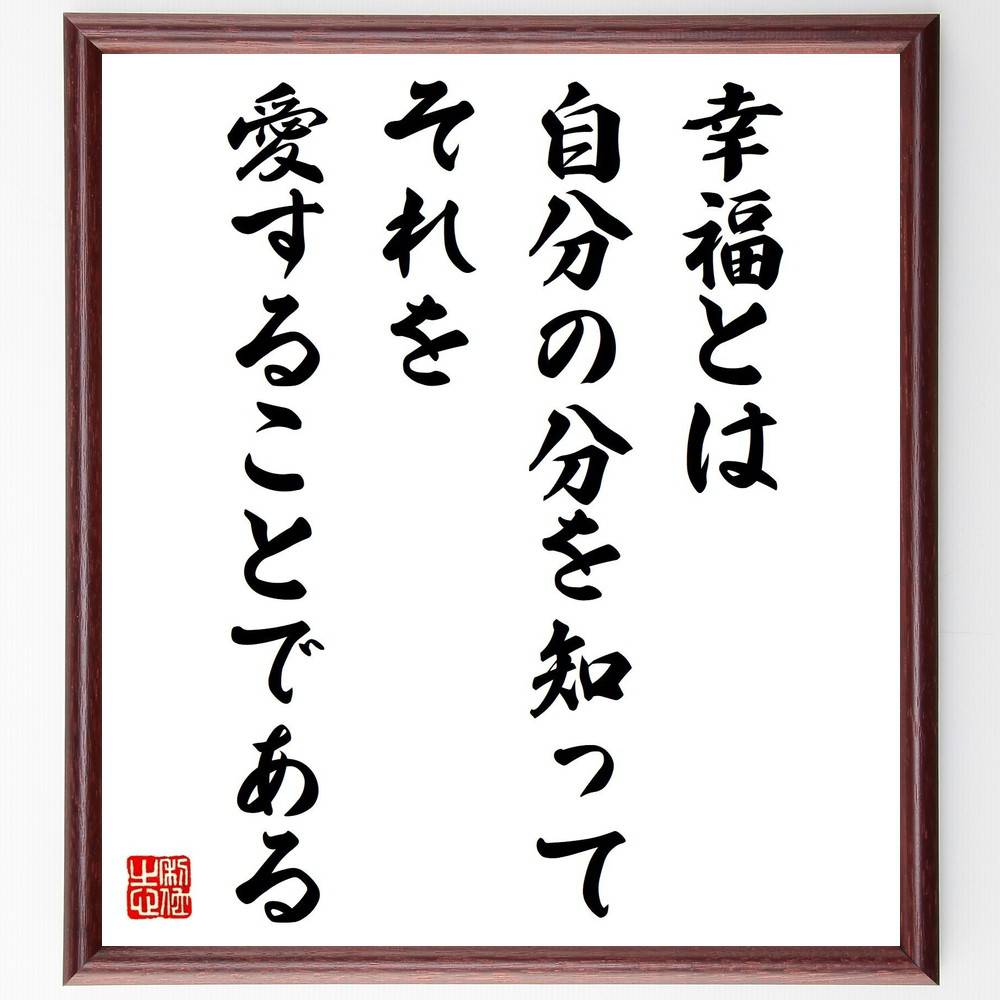 幸福とは
自分の分を知って
それを
愛することである